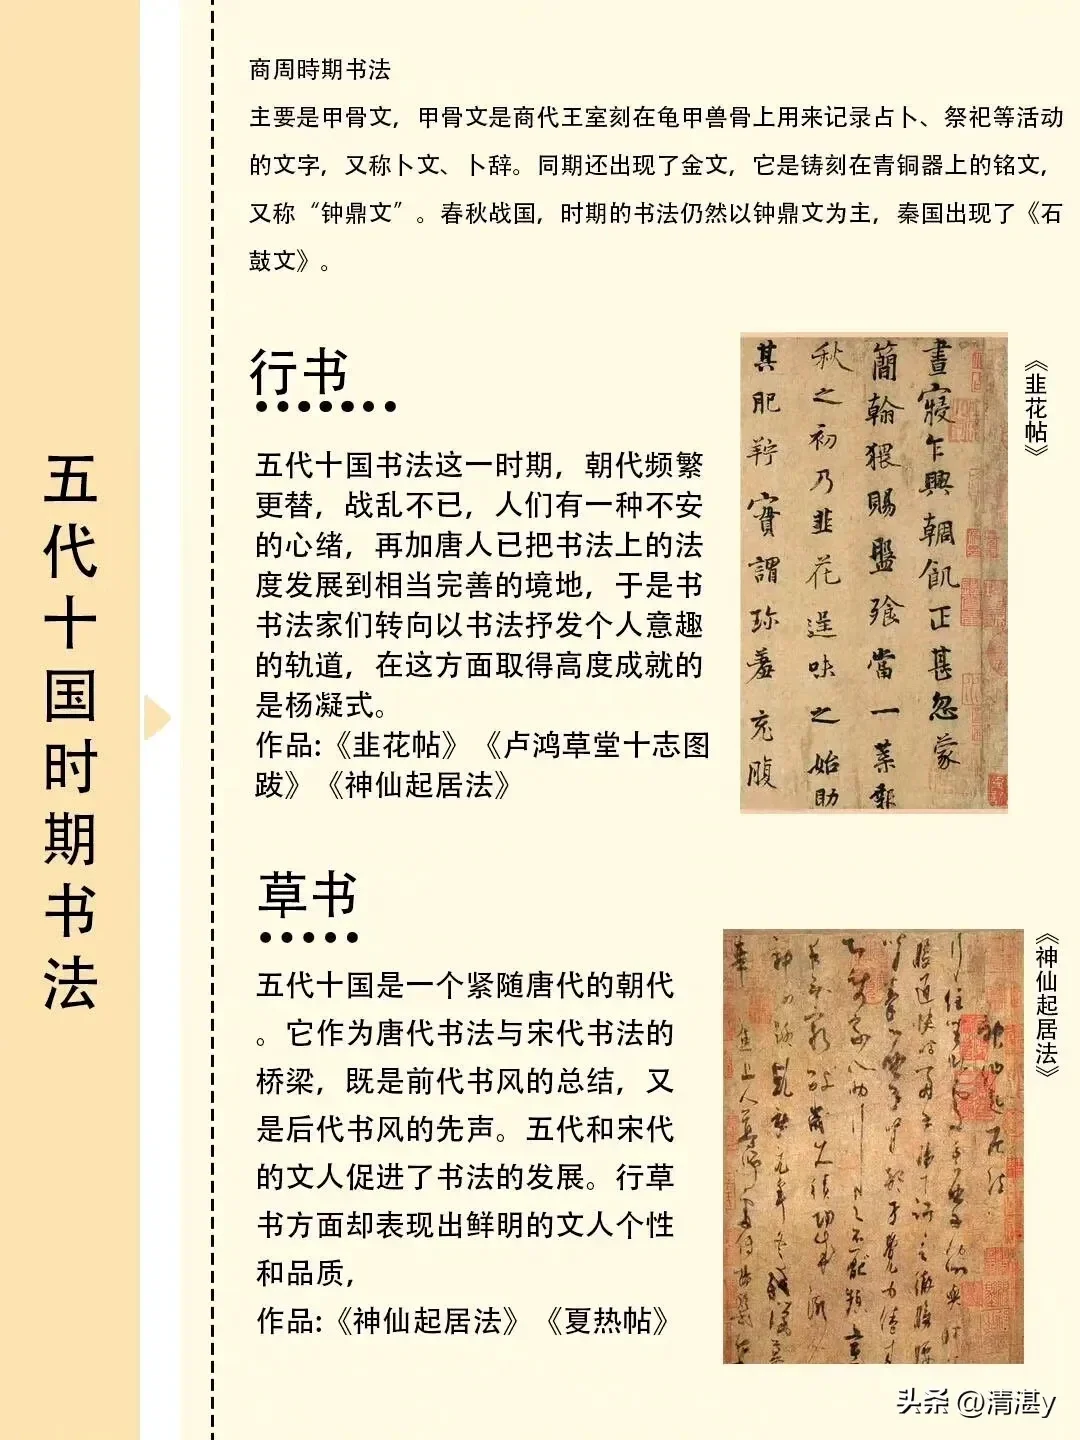 五代十国时期书法
商周時期书法
主要是甲骨文，甲骨文是商代王室刻在龟甲兽骨上用来记录占卜、祭祀等活动
的文字，又称卜文、卜辞。同期还出现了金文，它是铸刻在青铜器上的铭文，
又称“钟鼎文”。春秋战国，时期的书法仍然以钟鼎文为主，秦国出现了《石
鼓文》。
行书
五代十国书法这一时期，朝代频繁
更替，战乱不已，人们有一种不安
的心绪，再加唐人已把书法上的法
度发展到相当完善的境地，于是书
书法家们转向以书法抒发个人意趣
的轨道，在这方面取得高度成就的
是杨凝式。
作品:《韭花帖》《卢鸿草堂十志图
跋》《神仙起居法》
晝寢乍興輖飢正甚忽蒙
簡翰猥賜盤飧當一葉報
秋之初乃韭花逞味之始助
其肥羜實謂珍羞充腹
《韭花帖》
草书
五代十国是一个紧随唐代的朝代
。它作为唐代书法与宋代书法的
桥梁，既是前代书风的总结，又
是后代书风的先声。五代和宋代
的文人促进了书法的发展。行草
书方面却表现出鲜明的文人个性
和品质，
作品:《神仙起居法》《夏热帖》
神仙起居法
《神仙起居法》
头条 @清湛y